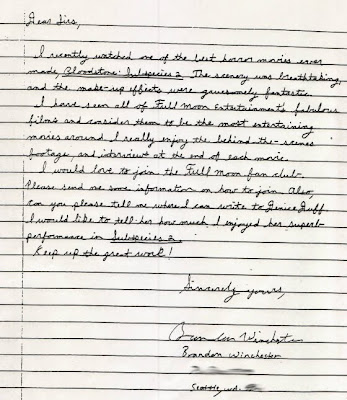 Dear Sirs,
I recently watched one of the best horror movies ever
made, Bloodstone: Subspecies 2. The scenery was breathtaking,
and the make-up effects were gruesomely fantastic.
I have seen all of Full Moon Entertainments fabulous
films and consider them to be the most entertaining
movies around. I really enjoy the behind-the-scenes
footage, and interview at the end of each movie.
I would love to join the Full Moon fan club.
Please send me some information on how to join. Also,
can you please tell me where I can write to Denice Duff.
I would like to tell her how much I enjoyed her superb
performance in Subspecies 2.
Keep up the great work!
Sincerely yours,
Brandon Winchester
Brandon Winchester
Seattle, wa.